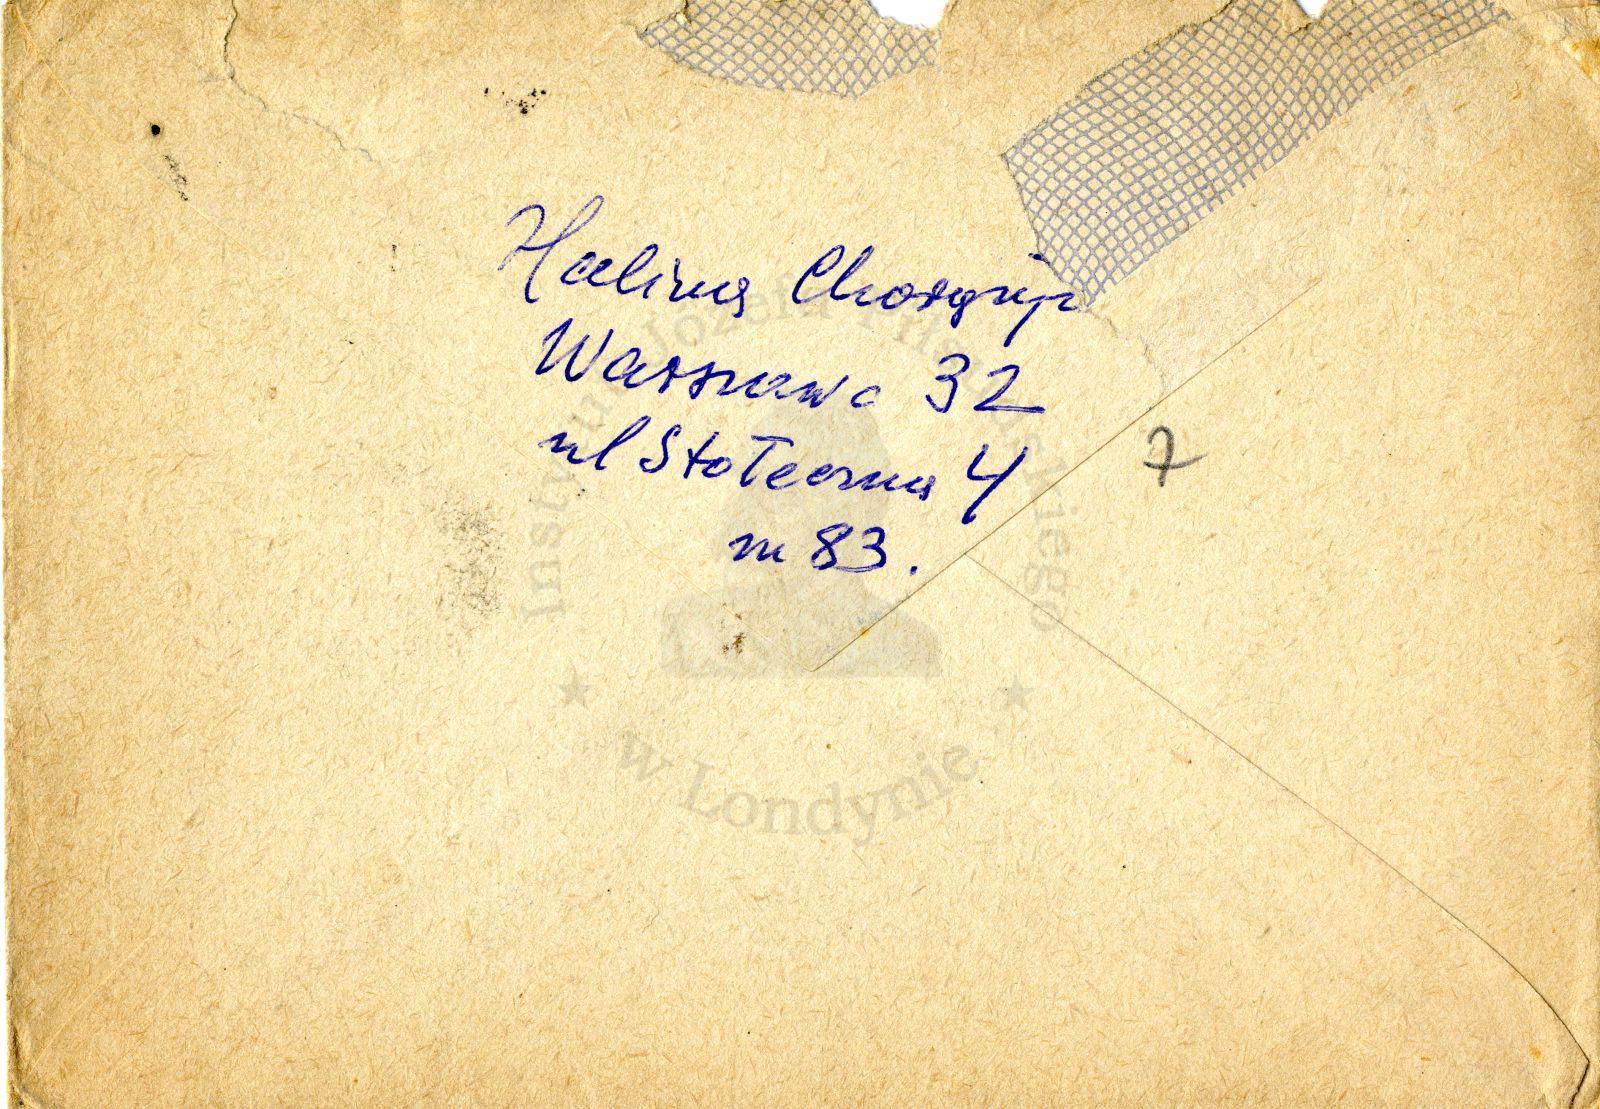 Halina
Warszawa 32
ul Stołeczna 4
m 83.
7
Instytut Józefa Piłsudskiego
w Londynie